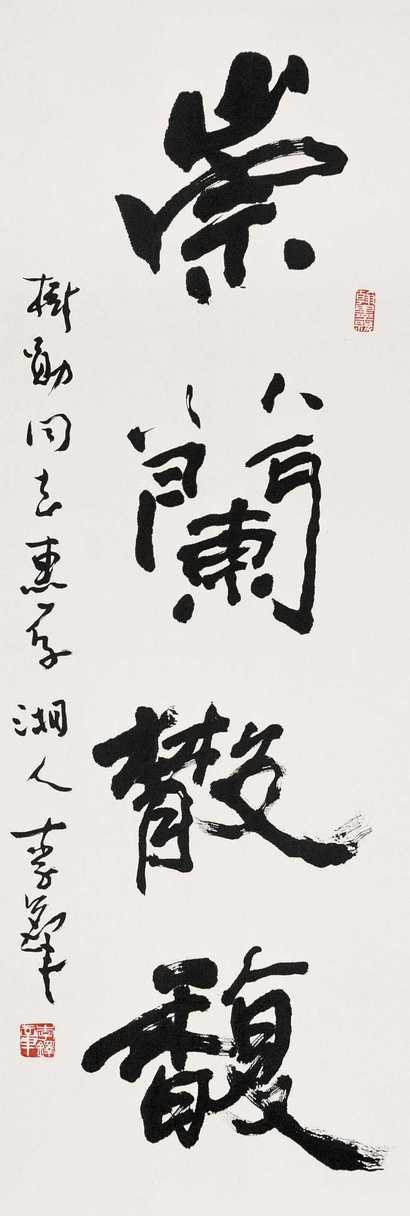 崇蘭散馥
樹勛同志惠存 湘人李鐸